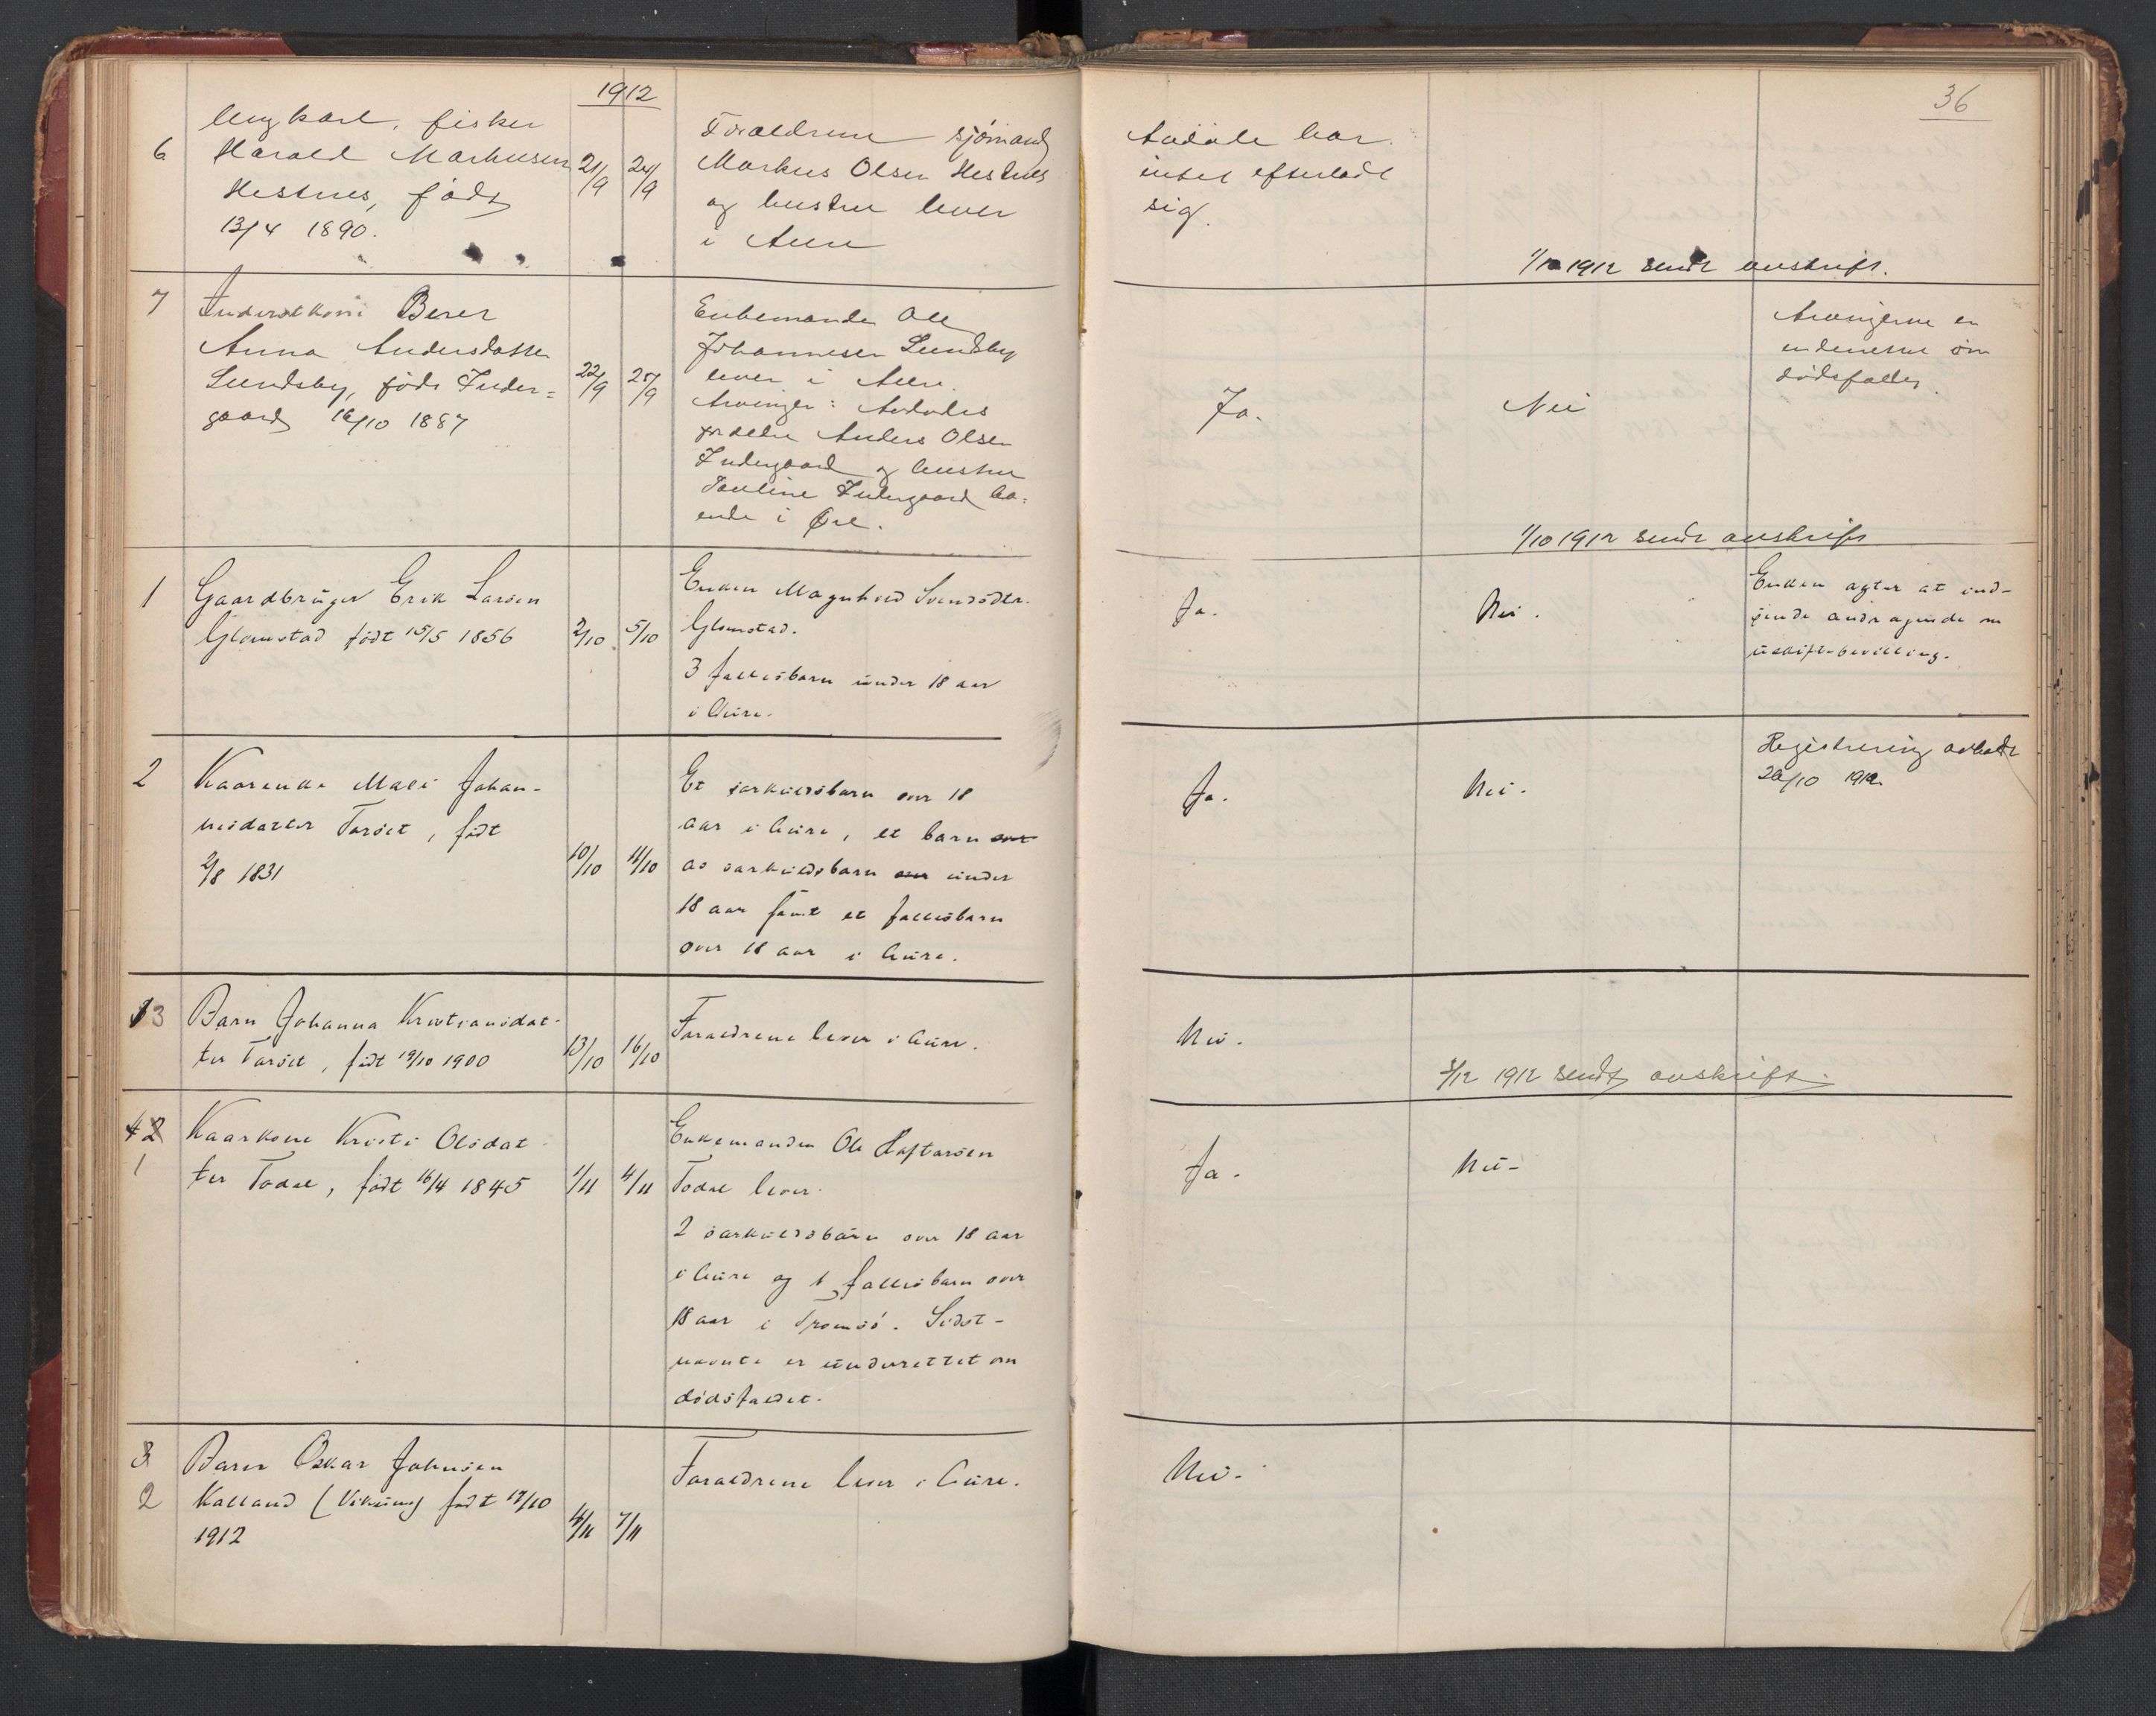 1912
36
6
Ungkarl, fisker
Harald Markussen
Hestnes, født
13/4 1890.
21/9
24/9
Forældrene sjømand
Markus Olsen Hestnes
og hustru lever
i Aure
Avdøde har
intet efterladt
sig.
1/10 1912 sendt avskrift.
7
Anna Andersdatter
Lundsby, født Inder=
gaard 16/10 1887
22/9
25/9
Enkemanden Ole
Johannesen Lundsby
lever i Aure.
Arvinger: Avdødes
forældre Anders Olsen
Indergaard og hustru
Pauline Indergaard bo-
ende i Øre.
Ja.
Nei
Arvingerne er
underrettet om
dødsfaldet.
1/10 1912 sendt avskrift
1
Gaardbruger Erik Larsen
Glomstad født 15/5 1856
2/10
5/10
Enken Magnhild Svendsdtr.
Glomstad.
3 fællesbarn under 18 aar
i Aure.
Ja.
Nei.
Enken agter at ind-
sende andragende om
uskifte-bevilling.
2
Kaarenke Mali Johan-
nesdatter Torset, født
2/8 1831
10/10
11/10
Et særkuldsbarn over 18
aar i Aure, et barn over
av særkuldsbarn over under
18 aar samt et fællesbarn
over 18 aar i Aure.
Ja.
Nei.
Registrering avholdt
26/10 1912
3
Barn Johanna Kristiansdat-
ter Torset, født 19/10 1900
13/10
16/10
Forældrene lever i Aure.
Nei.
3/12 1912 sendt avskrift.
4 2
1
Kaarkone Kristi Olsdat-
ter Todal, født 16/4 1845
1/11
4/11
Enkemanden Ole Haftorsen
Todal lever.
2 særkuldsbarn over 18 aar
i Aure og 1 fællesbarn over
18 aar i Tromsø. Sidst-
nævnte er underrettet om
dødsfaldet.
Ja.
Nei-
3
2
Barn Oskar Johnsen
Kalland født 17/10
1912
4/11
7/11
Forældrene lever i Aure.
Nei.